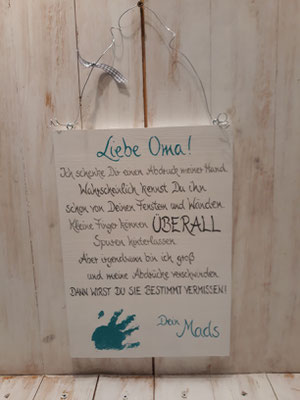 Liebe Oma!
Ich schenke Dir einen Abdruck meiner Hand.
Wahrscheinlich kennst Du ihn
schon von Deinen Fenstern und Wänden.
Kleine Finger können ÜBERALL
Spuren hinterlassen.
Aber irgendwann bin ich groß
und meine Abdrücke verschwinden.
DANN WIRST DU SIE BESTIMMT VERMISSEN!
Dein
Mads